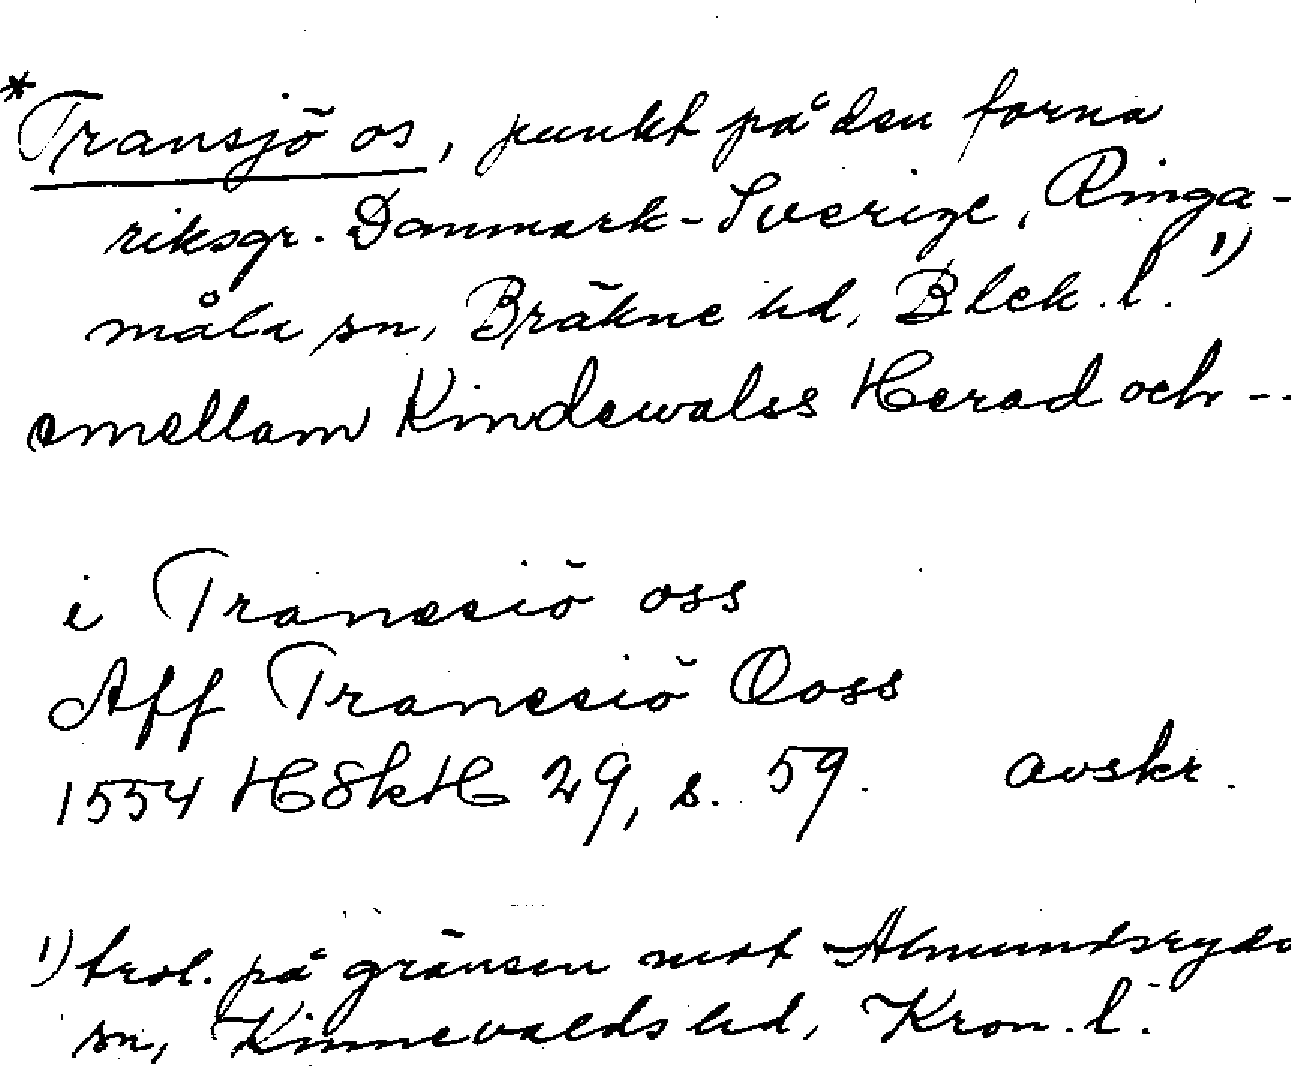 *Transjö os, punkt på den forna
riksgr. Danmark-Sverige, Ringa-
måla sn, Bräkne hd, Blek. l. 1)
emellam Kindewalss Herad och --
i Tranesiö oss
Aff Tranesiö Ooss
1554 HSkH 29, s. 59. avskr.
1) trol. på gränsen mot Almundsryds
sn, Kinnevalds hd, Kron. l.